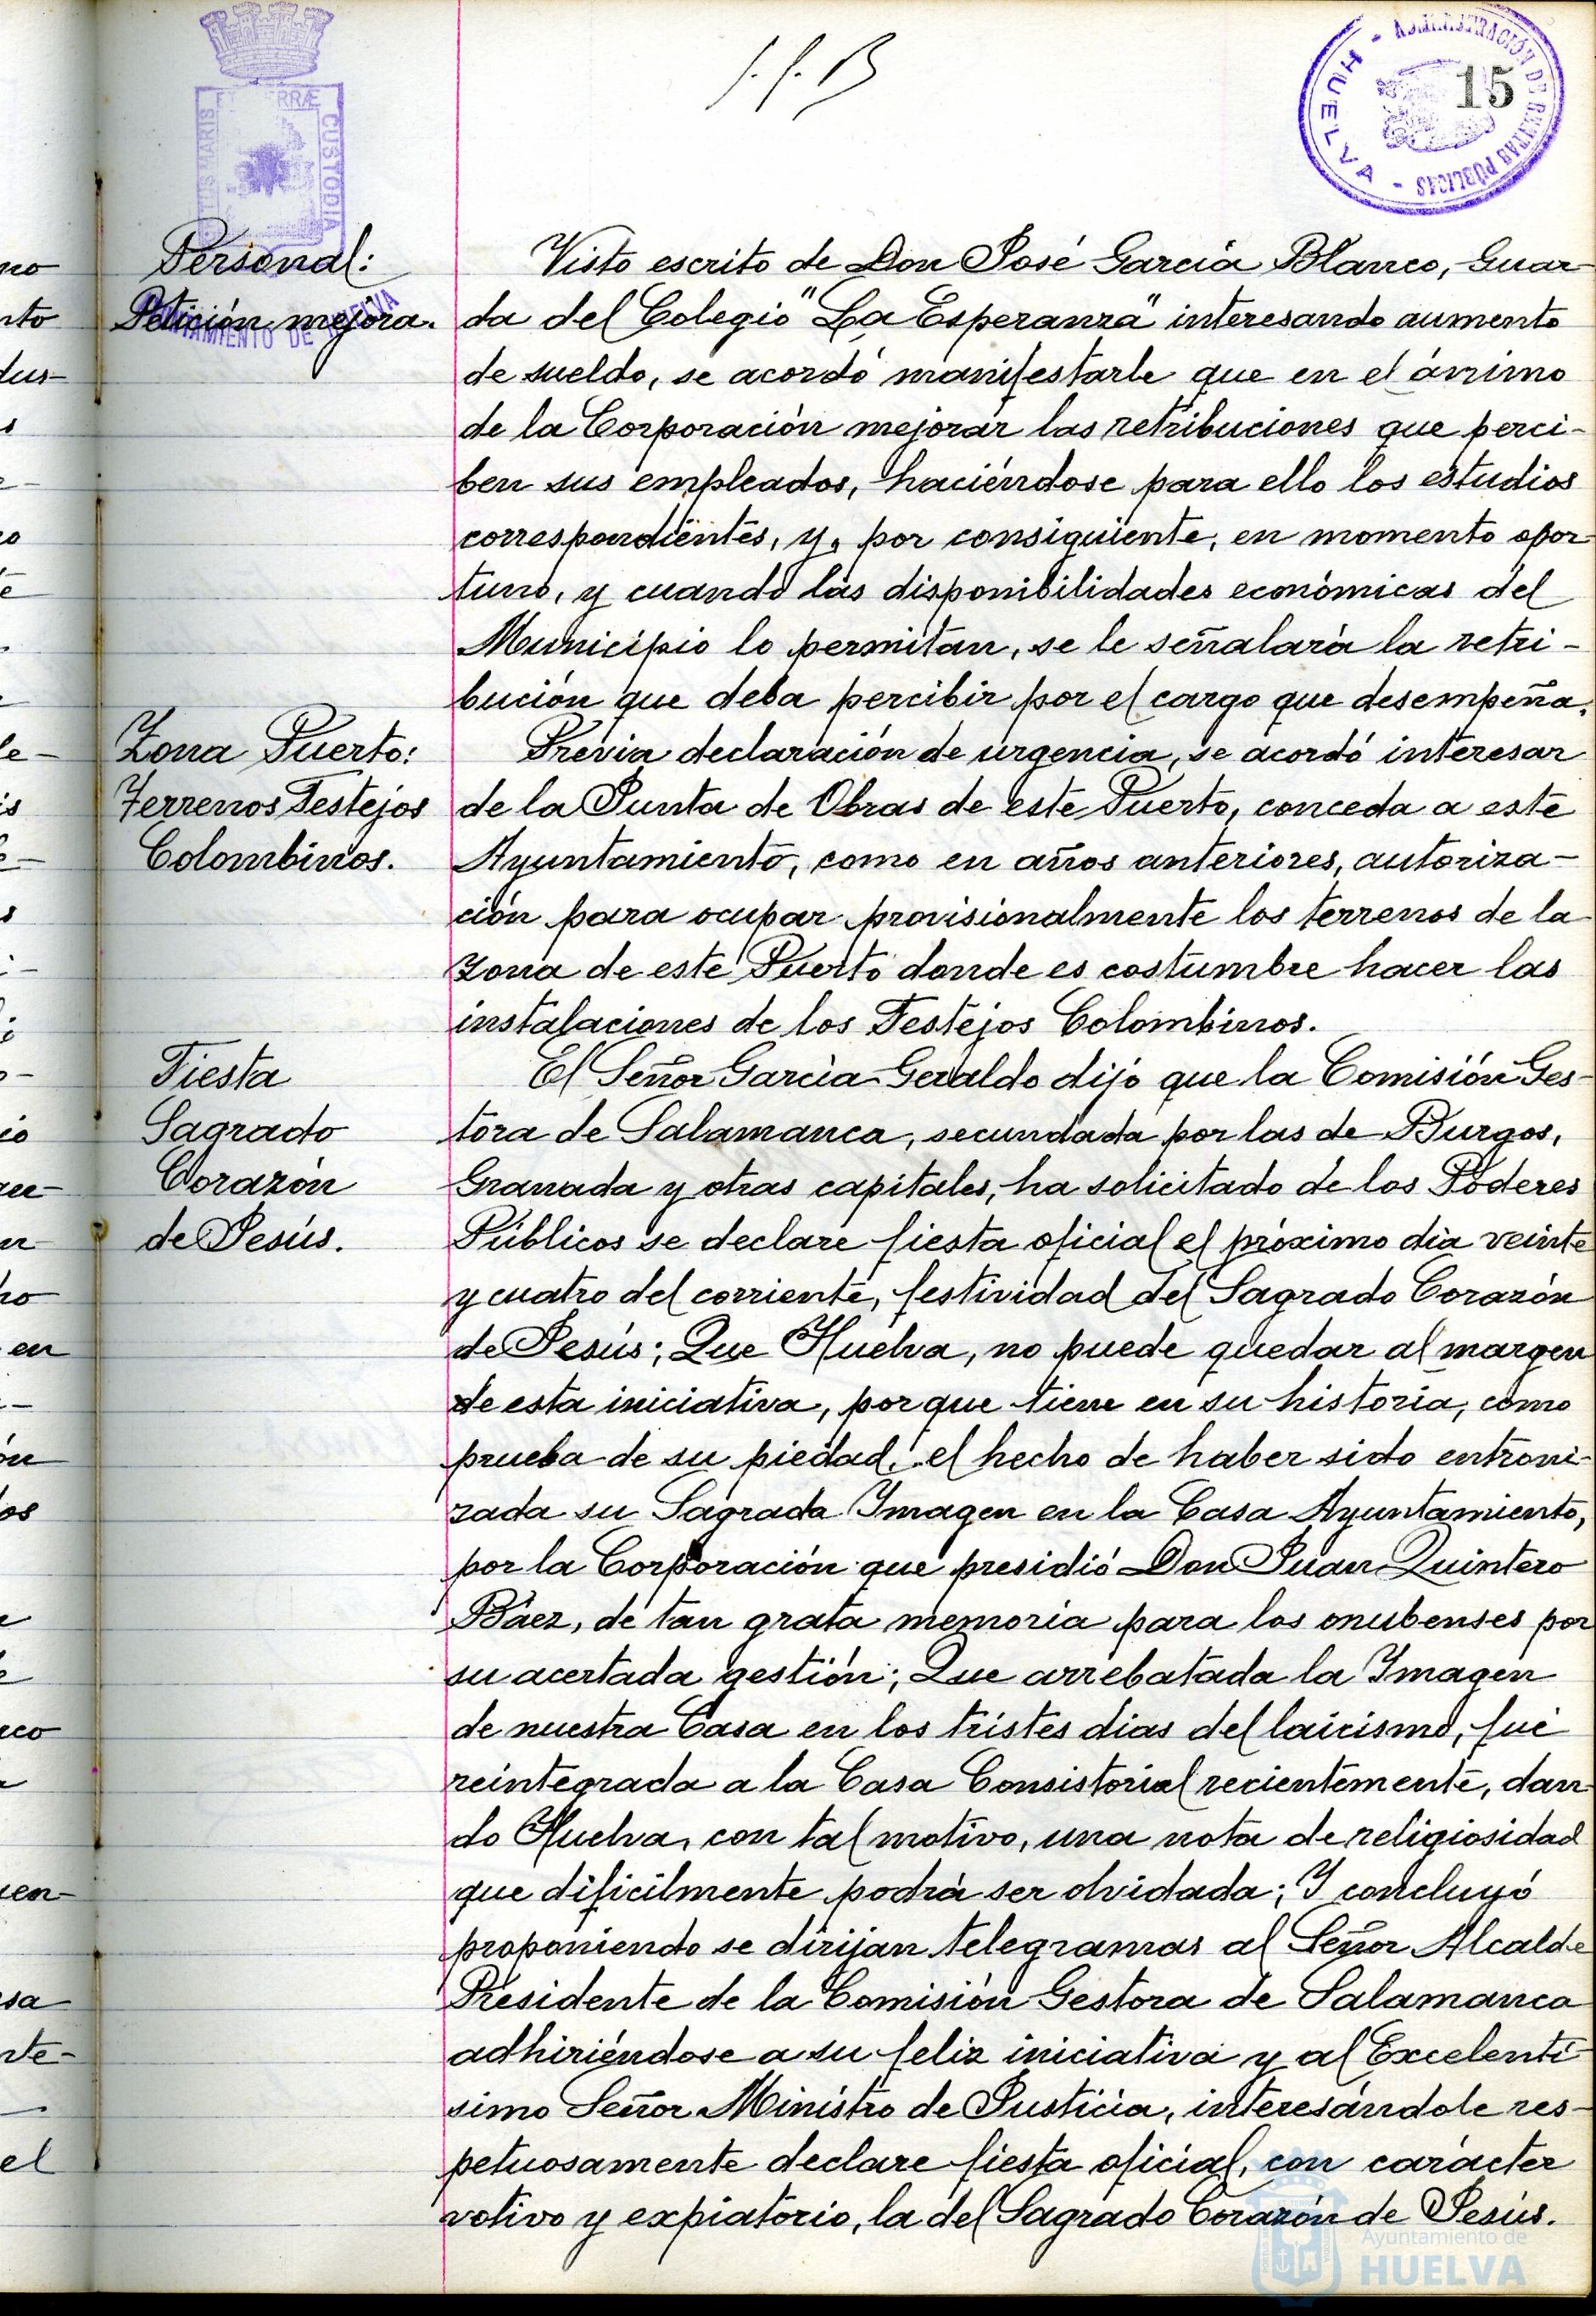 ADMINISTRACIÓN DE RENTAS PÚBLICAS - HUELVA -
15
Personal:
Petición mejora.
Visto escrito de Don José García Blanco, Guar-
da del Colegio "La Esperanza" interesando aumento
de sueldo, se acordó manifestarle que en el ánimo
de la Corporación mejorar las retribuciones que perci-
ben sus empleados, haciéndose para ello los estudios
correspondientes, y, por consiguiente, en momento opor-
tuno, y cuando las disponibilidades económicas del
Municipio lo permitan, se le señalará la retri-
bución que deba percibir por el cargo que desempeña.
Zona Puerto:
Terrenos Festejos
Colombinos.
Previa declaración de urgencia, se acordó interesar
de la Junta de Obras de este Puerto, conceda a este
Ayuntamiento, como en años anteriores, autoriza-
ción para ocupar provisionalmente los terrenos de la
zona de este Puerto donde es costumbre hacer las
instalaciones de los Festejos Colombinos.
Fiesta
Sagrado
Corazón
de Jesús.
El Señor García Geraldo dijo que la Comisión Ges-
tora de Salamanca, secundada por las de Burgos,
Granada y otras capitales, ha solicitado de los Poderes
Públicos se declare fiesta oficial el próximo dia veinte
y cuatro del corriente, festividad del Sagrado Corazón
de Jesús; Que Huelva, no puede quedar al margen
de esta iniciativa, porque tiene en su historia, como
prueba de su piedad, el hecho de haber sido entroni-
zada su Sagrada Imagen en la Casa Ayuntamiento,
por la Corporación que presidió Don Juan Quintero
Báez, de tan grata memoria para los onubenses por
su acertada gestión; Que arrebatada la Imagen
de nuestra Casa en los tristes dias del laicismo, fué
reintegrada a la Casa Consistorial recientemente, dan-
do Huelva, con tal motivo, una nota de religiosidad
que dificilmente podrá ser olvidada; Y concluyó
proponiendo se dirijan telegramas al Señor Alcalde
Presidente de la Comisión Gestora de Salamanca
adhiriéndose a su feliz iniciativa y al Excelentí-
simo Señor Ministro de Justicia, interesándole res-
petuosamente declare fiesta oficial, con carácter
votivo y expiatorio, la del Sagrado Corazón de Jesús.
Ayuntamiento de
HUELVA